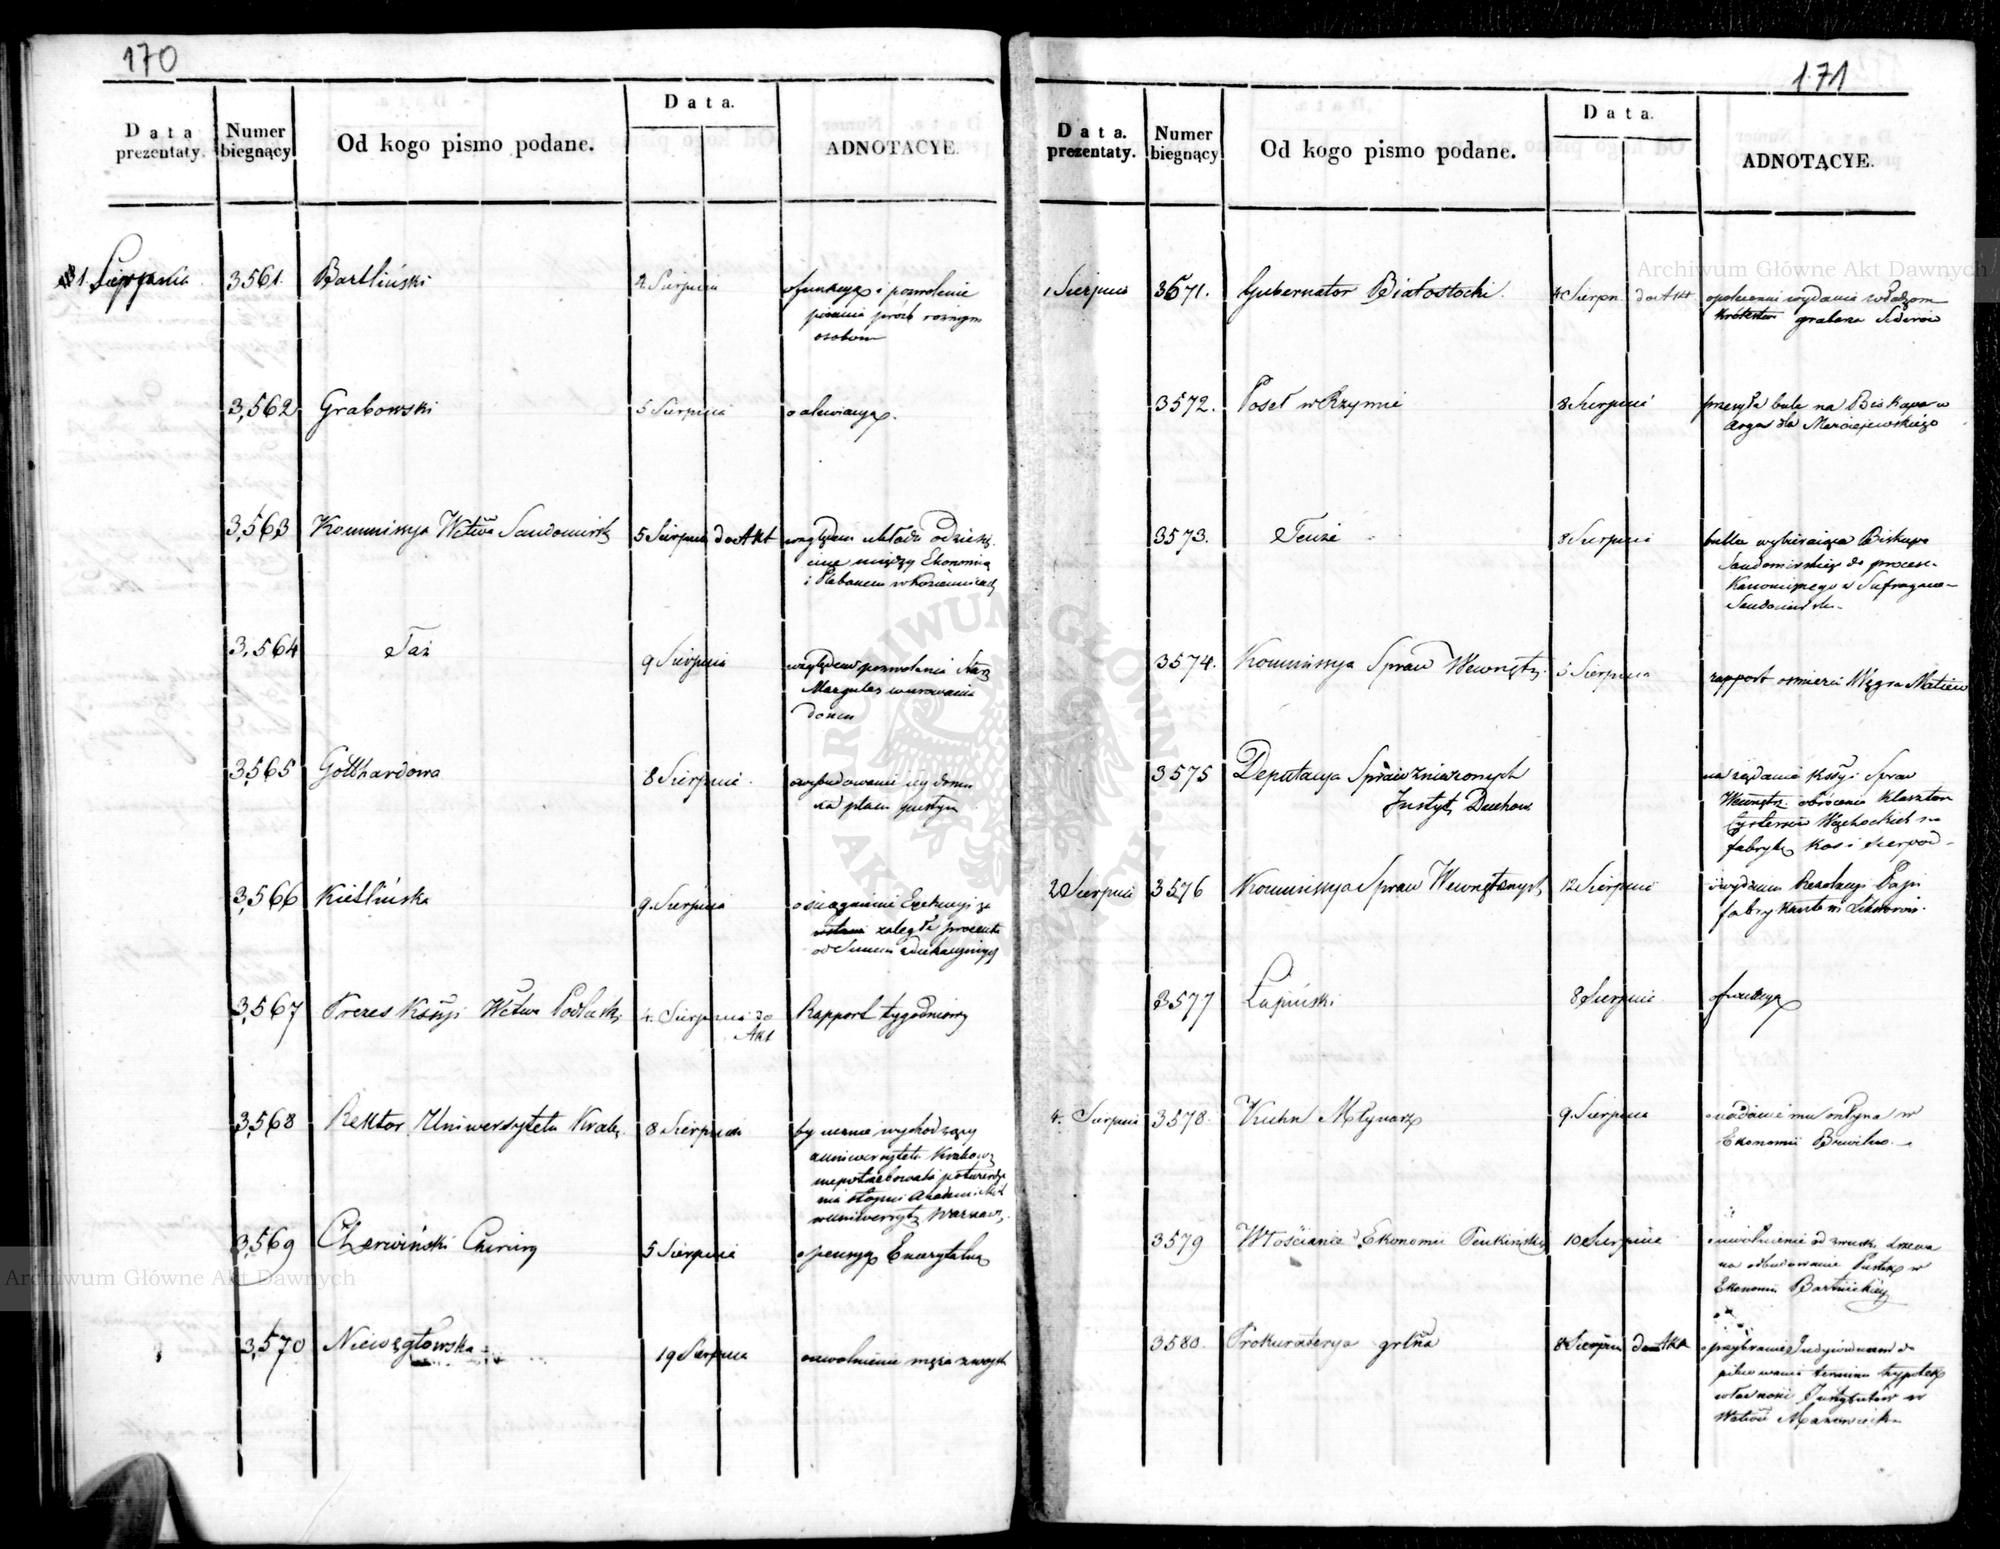 170
Data prezentaty.
Numer biegnący
Od kogo pismo podane.
Data.
ADNOTACYE.
1. Sierpnia
3,561.
Bartliński
2 Sierpnia
o funkcyą i pozwolenie
pisania próźb roznym
osobom
3,562
Grabowski
5 Sierpnia
o alewiacyą.
3,563
Kommissya Wctwa Sandomirsk
5 Sierpnia do Akt
względem układu o dziesię-
cinę między Ekonomią
i Plebanem w Kozienicach
3,564
Taż
9 Sierpnia
względem pozwolenia
Margules murowania
domu
3,565
Gotthardowa
8 Sierpnia
o wybudowanie jey domu
na placu pustym
3,566
Kietlińska
9 Sierpnia
o ściągnienie Exekucyi za
zaległe procenta
od Summ edukacyjnych
3,567
Prezes Kossyi Wctwa Podlaski
4. Sierpnia do
Akt
Rapport tygodniowy
3,568
Rektor Uniwersytetu Krak.
8 Sierpnia
by ucznie wychodzący
z uniwersytetu Krakow.
niepotrzebowali potwierdze
nia stopni Akademickich
w uniwersyt. Warszaw.
3,569
Czerwiński Chirurg
5 Sierpnia
o pensyą Emerytalną
3,570
Niewęgłowska
19 Sierpnia
o uwolnienie męża z woysk
171
Data. prezentaty.
Numer biegnący
Od kogo pismo podane.
Data.
ADNOTACYE.
1 Sierpnia
3571.
Gubernator Białostocki.
4 Sierpn. do Akt
o poleceniu wydania władzom
Królestwa grabarza
3572.
Poseł w Rzymie
8 Sierpnia
przesyła bulę na Biskupa w
Argos dla Maciejewskiego
3573.
Tenże
8 Sierpnia
bulla wybieraiąca Biskupa
Sandomirskiego do proces.
Kanonicznego Sufragana
Sandomirsk.
3574.
Kommissya Spraw Wewnętz.
5 Sierpnia
rapport o śmierci Węgra
3575
Deputacya Spraw Zniesionych
Instyt. Duchow.
na żądanie Kossyi Spraw
Wewnętrz. obrócenia Klasztor
Cystersów Wąchockich na
fabrykę Kos i Sierpów
2 Sierpnia
3576
Kommissya Spraw Wewnętrznych
12 Sierpnia
o wydanie Rezolucyi
fabrykantowi Likworów.
3577
Łapiński
8 Sierpnia
o funkcyą
4. Sierpnia
3578.
Kuhn Młynarz
9. Sierpnia
o nadanie mu młyna w
Ekonomii
3579
Włościanie Ekonomii
10 Sierpnia
o uwolnienie od zwózki drzewa
na odbudowanie Pustek w
Ekonomii
3580.
Prokuratorya grlna
8 Sierpnia do Akt
o przybranie Indywiduum do
pilnowania terminu hypotek
własności Instytutów w
Wctwie Mazowieckim
Archiwum Główne Akt Dawnych
Archiwum Główne Akt Dawnych
ARCHIWUM GŁÓWNE AKT DAWNYCH